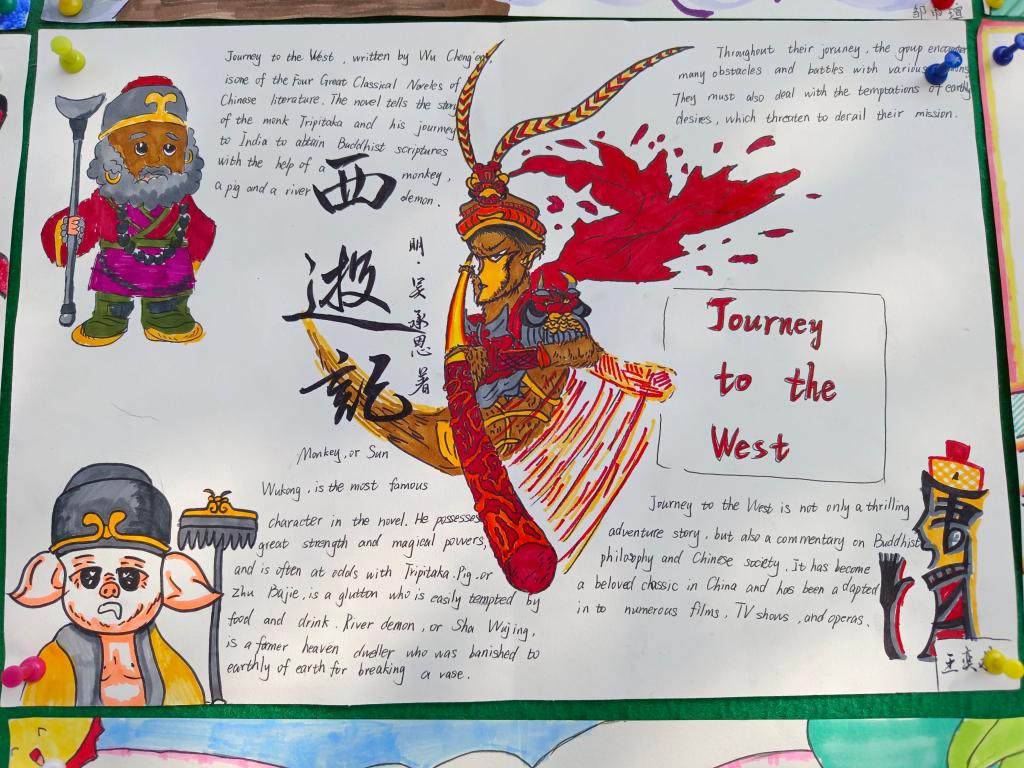 邹
Journey to the West, written by Wu Cheng'en,
is one of the Four Great Classical Noveles of
Chinese literature. The novel tells the story
of the monk Tripitaka and his journey
to India to abtain Buddhist scriptures
with the help of a monkey,
a pig and a river demon.
Throughout their joruney, the group encounter
many obstacles and battles with various
They must also deal with the temptations of earthly
desires, which threaten to derail their mission.
西
遊
記
明·吴承恩著
Journey
to the
West
Monkey, or Sun
Wukong, is the most famous
character in the novel. He possesses
great strength and magical powers,
and is often at odds with Tripitaka. Pig, or
Zhu Bajie, is a glutton who is easily tempted by
food and drink. River demon, or Sha Wujing,
is a former heaven dweller who was banished to
earthly of earth for breaking a vase.
Journey to the West is not only a thrilling
adventure story, but also a commentary on Buddhist
philosophy and Chinese society. It has become
a beloved classic in China and has been a dapted
in to numerous films, TV shows, and operas.
王奕